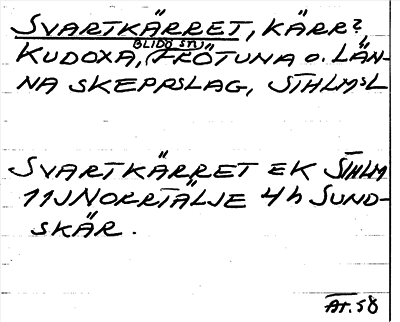 SVARTKÄRRET, KÄRR?
BLIDÖ SN
KUDOXA, FRÖTUNA O. LÄN-
NA SKEPPSLAG, STHLMSL
SVARTKÄRRET EK STHLM
11J NORRTÄLJE 4h SUND-
SKÄR.
AT. 58